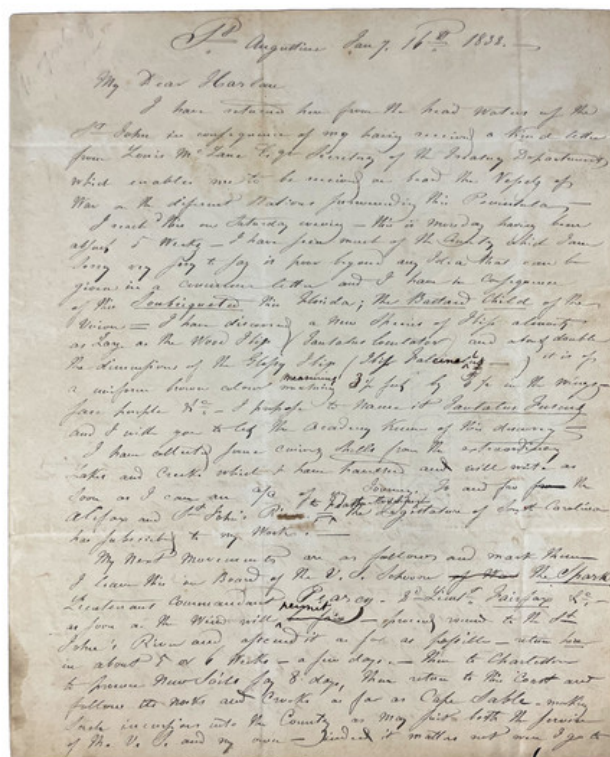 St Augustine Jany. 16th 1832. —
My Dear Harlan
I have returned here from the head waters of the
St John in consequence of my having received a kind letter
from Louis McLane Esqr Secretary of the Treasury Department
which enables me to be received on board the Vessels of
War or the different Stations surrounding this Peninsula,
I reachd this on Saturday evening — this is monday having been
absent 5 Weeks — I have seen much of the County which I am
sorry very sorry to say is poor beyond any Idea that can be
given in a letter and I have in consequence
of this this Florida; the Bastard Child of the
Union = I have discovered a new Species of Ibis almost
as Large as the Wood Ibis (Tantalus loculator) and about double
the dimensions of the Glossy Ibis (Ibis Falcinellus —) it is of
a uniform brown colour measuring 3½ feet by in the wings
face purple &c — I propose to name it Tantalus fuscus
and I wish you to let the Academy know of this discovery —
I have collected some curious Shells from the extraordinary
Lakes and Creeks which I have traversed and will write as
soon as I can an a/c of to and fro the
Alifax and St John's River = the Legislature of South Carolina
has subscribed to my Work. —
My Next Movements are as follows and mark them —
I leave this on Board of the U. S. Schooner the Spark
Lieutenant Commandant Piercy. 2d Lieut. Fairfax &c —
as soon as the Wind will permit — proceed round to the St
John's River and ascend it as far as possible — return here
in about 5 or 6 Weeks — a few days. — then to Charleston
to procure New Sails say 8 days, then return to this Coast and
follow its nooks and Creeks as far as Cape Sable — making
such incursions into the County as may suit both the service
of the U. S. and my own — indeed it matters not were I go to